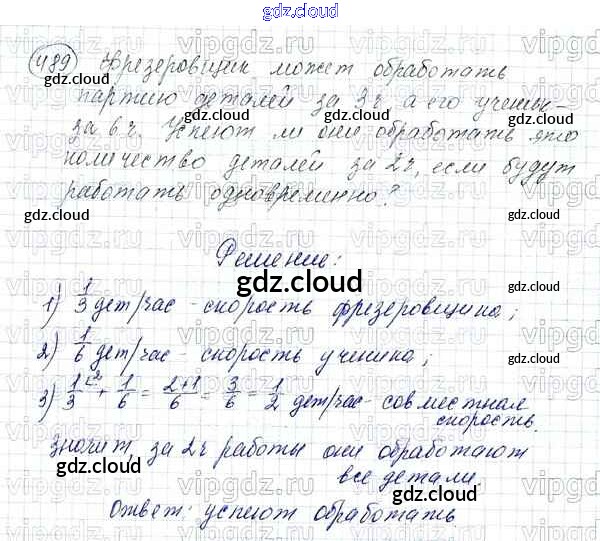 gdz.cloud
489 Фрезеровщик может обработать
партию деталей за 3ч, а его ученик -
за 6ч. Успеют ли они обработать это
количество деталей за 2ч, если будут
работать одновременно?
Решение:
gdz.cloud
1) 1/3 дет/час - скорость фрезеровщика;
2) 1/6 дет/час - скорость ученика;
3) 1/3 + 1/6 = 2+1/6 = 3/6 = 1/2 дет/час - совместная
скорость.
значит, за 2ч работы они обработают
все детали.
Ответ: успеют обработать